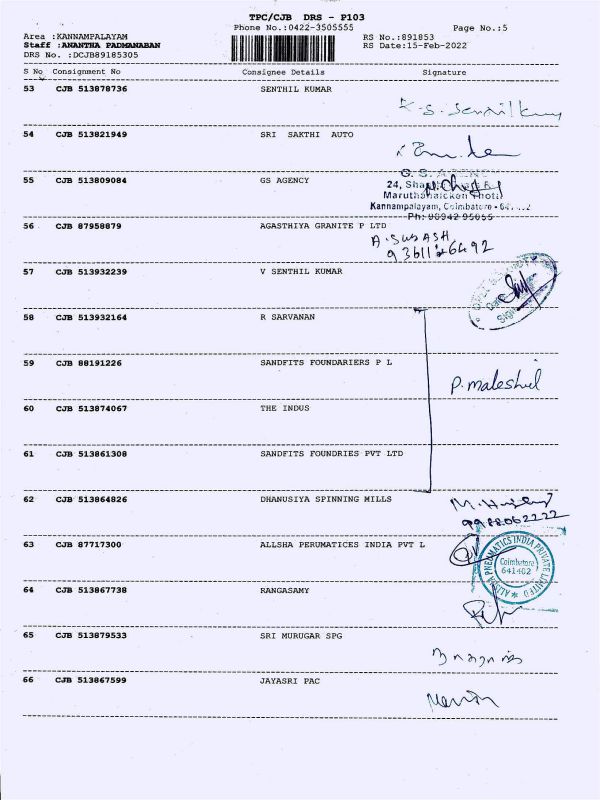 TPC/CJB DRS - P103
Phone No.:0422-3505555
Page No.:5
Area :KANNAMPALAYAM
RS No.:891853
Staff :ANANTHA PADMANABAN
RS Date:15-Feb-2022
DRS No. :DCJB89185305
S No Consignment No Consignee Details Signature
53 CJB 513878736 SENTHIL KUMAR
54 CJB 513821949 SRI SAKTHI AUTO
55 CJB 513809084 GS AGENCY
G. S. AGENCY
24,
Maruthanaickan Thotta
Kannampalayam, Coimbatore -
56 CJB 87958879 AGASTHIYA GRANITE P LTD
A. SUBASH
57 CJB 513932239 V SENTHIL KUMAR
58 CJB 513932164 R SARVANAN
59 CJB 88191226 SANDFITS FOUNDARIERS P L
60 CJB 513874067 THE INDUS
61 CJB 513861308 SANDFITS FOUNDRIES PVT LTD
62 CJB 513864826 DHANUSIYA SPINNING MILLS
63 CJB 87717300 ALLSHA PERUMATICES INDIA PVT L
PNEUMATICS INDIA PRIVATE LIMITED
Coimbatore
641402
64 CJB 513867738 RANGASAMY
65 CJB 513879533 SRI MURUGAR SPG
66 CJB 513867599 JAYASRI PAC